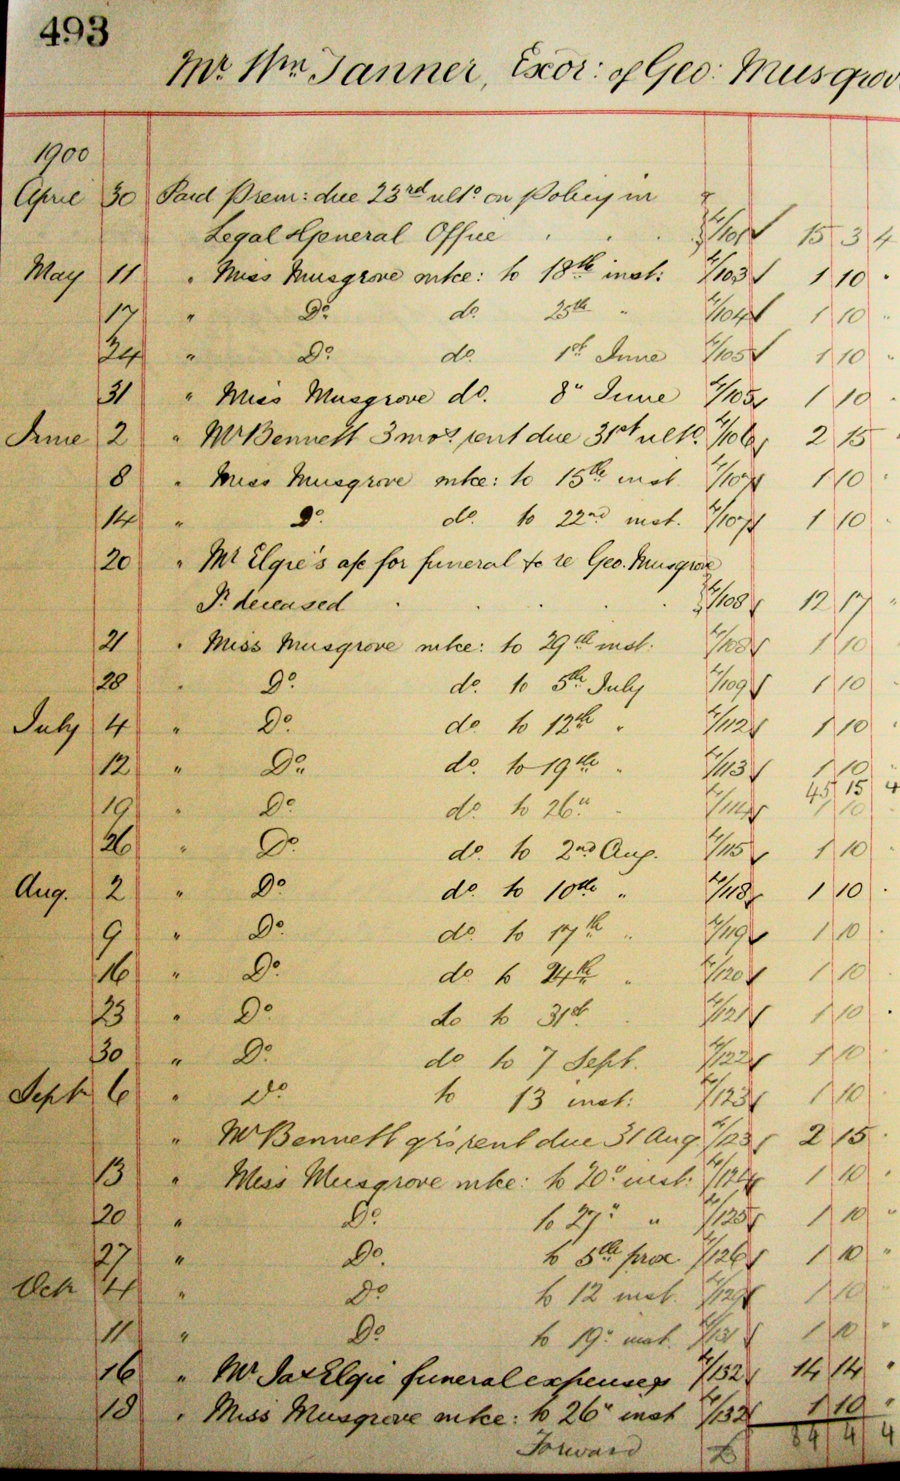 493
Mr. Wm. Tanner, Exor: of Geo: Musgrov
1900
April 30 Paid Prem: due 23rd ulto on Policy in
Legal & General Office . . . 4/101 ✓ 15 3 4
May 11 " Miss Musgrove mtce: to 18th inst: 4/103 ✓ 1 10 "
17 " Do. do. 25th " 4/104 ✓ 1 10 "
24 " Do. do. 1st June 4/105 ✓ 1 10 "
31 " Miss Musgrove do. 8" June 4/105 ✓ 1 10 "
June 2 " Mr Bennett 3 mos. rent due 31st ulto. 4/106 ✓ 2 15 "
8 " Miss Musgrove mtce: to 15th inst 4/107 ✓ 1 10 "
14 " Do. do. to 22nd inst. 4/107 ✓ 1 10 "
20 " Mr Elgie's a/c for funeral &c re Geo. Musgrove
Jr. deceased . . . . 4/108 ✓ 12 17 "
21 " Miss Musgrove mtce: to 29th inst. 4/108 ✓ 1 10
28 " Do. do. to 5th July 4/109 ✓ 1 10 "
July 4 " Do. do. to 12th " 4/112 ✓ 1 10 "
12 " Do. do. to 19th " 4/113 ✓ 1 10 "
45 15 4
19 " Do. do. to 26" " 4/114 ✓ 1 10 "
26 " Do. do. to 2nd Aug. 4/115 ✓ 1 10 "
Aug. 2 " Do. do. to 10th " 4/118 ✓ 1 10 "
9 " Do. do. to 17th " 4/119 ✓ 1 10 "
16 " Do. do. to 24th " 4/120 ✓ 1 10 "
23 " Do. do to 31st. " 4/121 ✓ 1 10 "
30 " Do. do to 7 Sept. 4/122 ✓ 1 10 "
Sept 6 " Do. to 13 inst: 4/123 ✓ 1 10 "
" Mr Bennett qr's rent due 31 Aug 4/123 ✓ 2 15 "
13 " Miss Musgrove mtce: to 20" inst: 4/124 ✓ 1 10 "
20 " Do. to 27" " 4/125 ✓ 1 10 "
27 " Do. to 5th prox. 4/126 ✓ 1 10 "
Oct 4 " Do. to 12 inst. 4/129 ✓ 1 10 "
11 " Do. to 19" inst. 4/131 ✓ 1 10 "
16 " Mr Jas Elgie funeral expenses 4/132 ✓ 14 14 "
18 " Miss Musgrove mtce: to 26" inst 4/132 ✓ 1 10 "
Forward £ 84 4 4